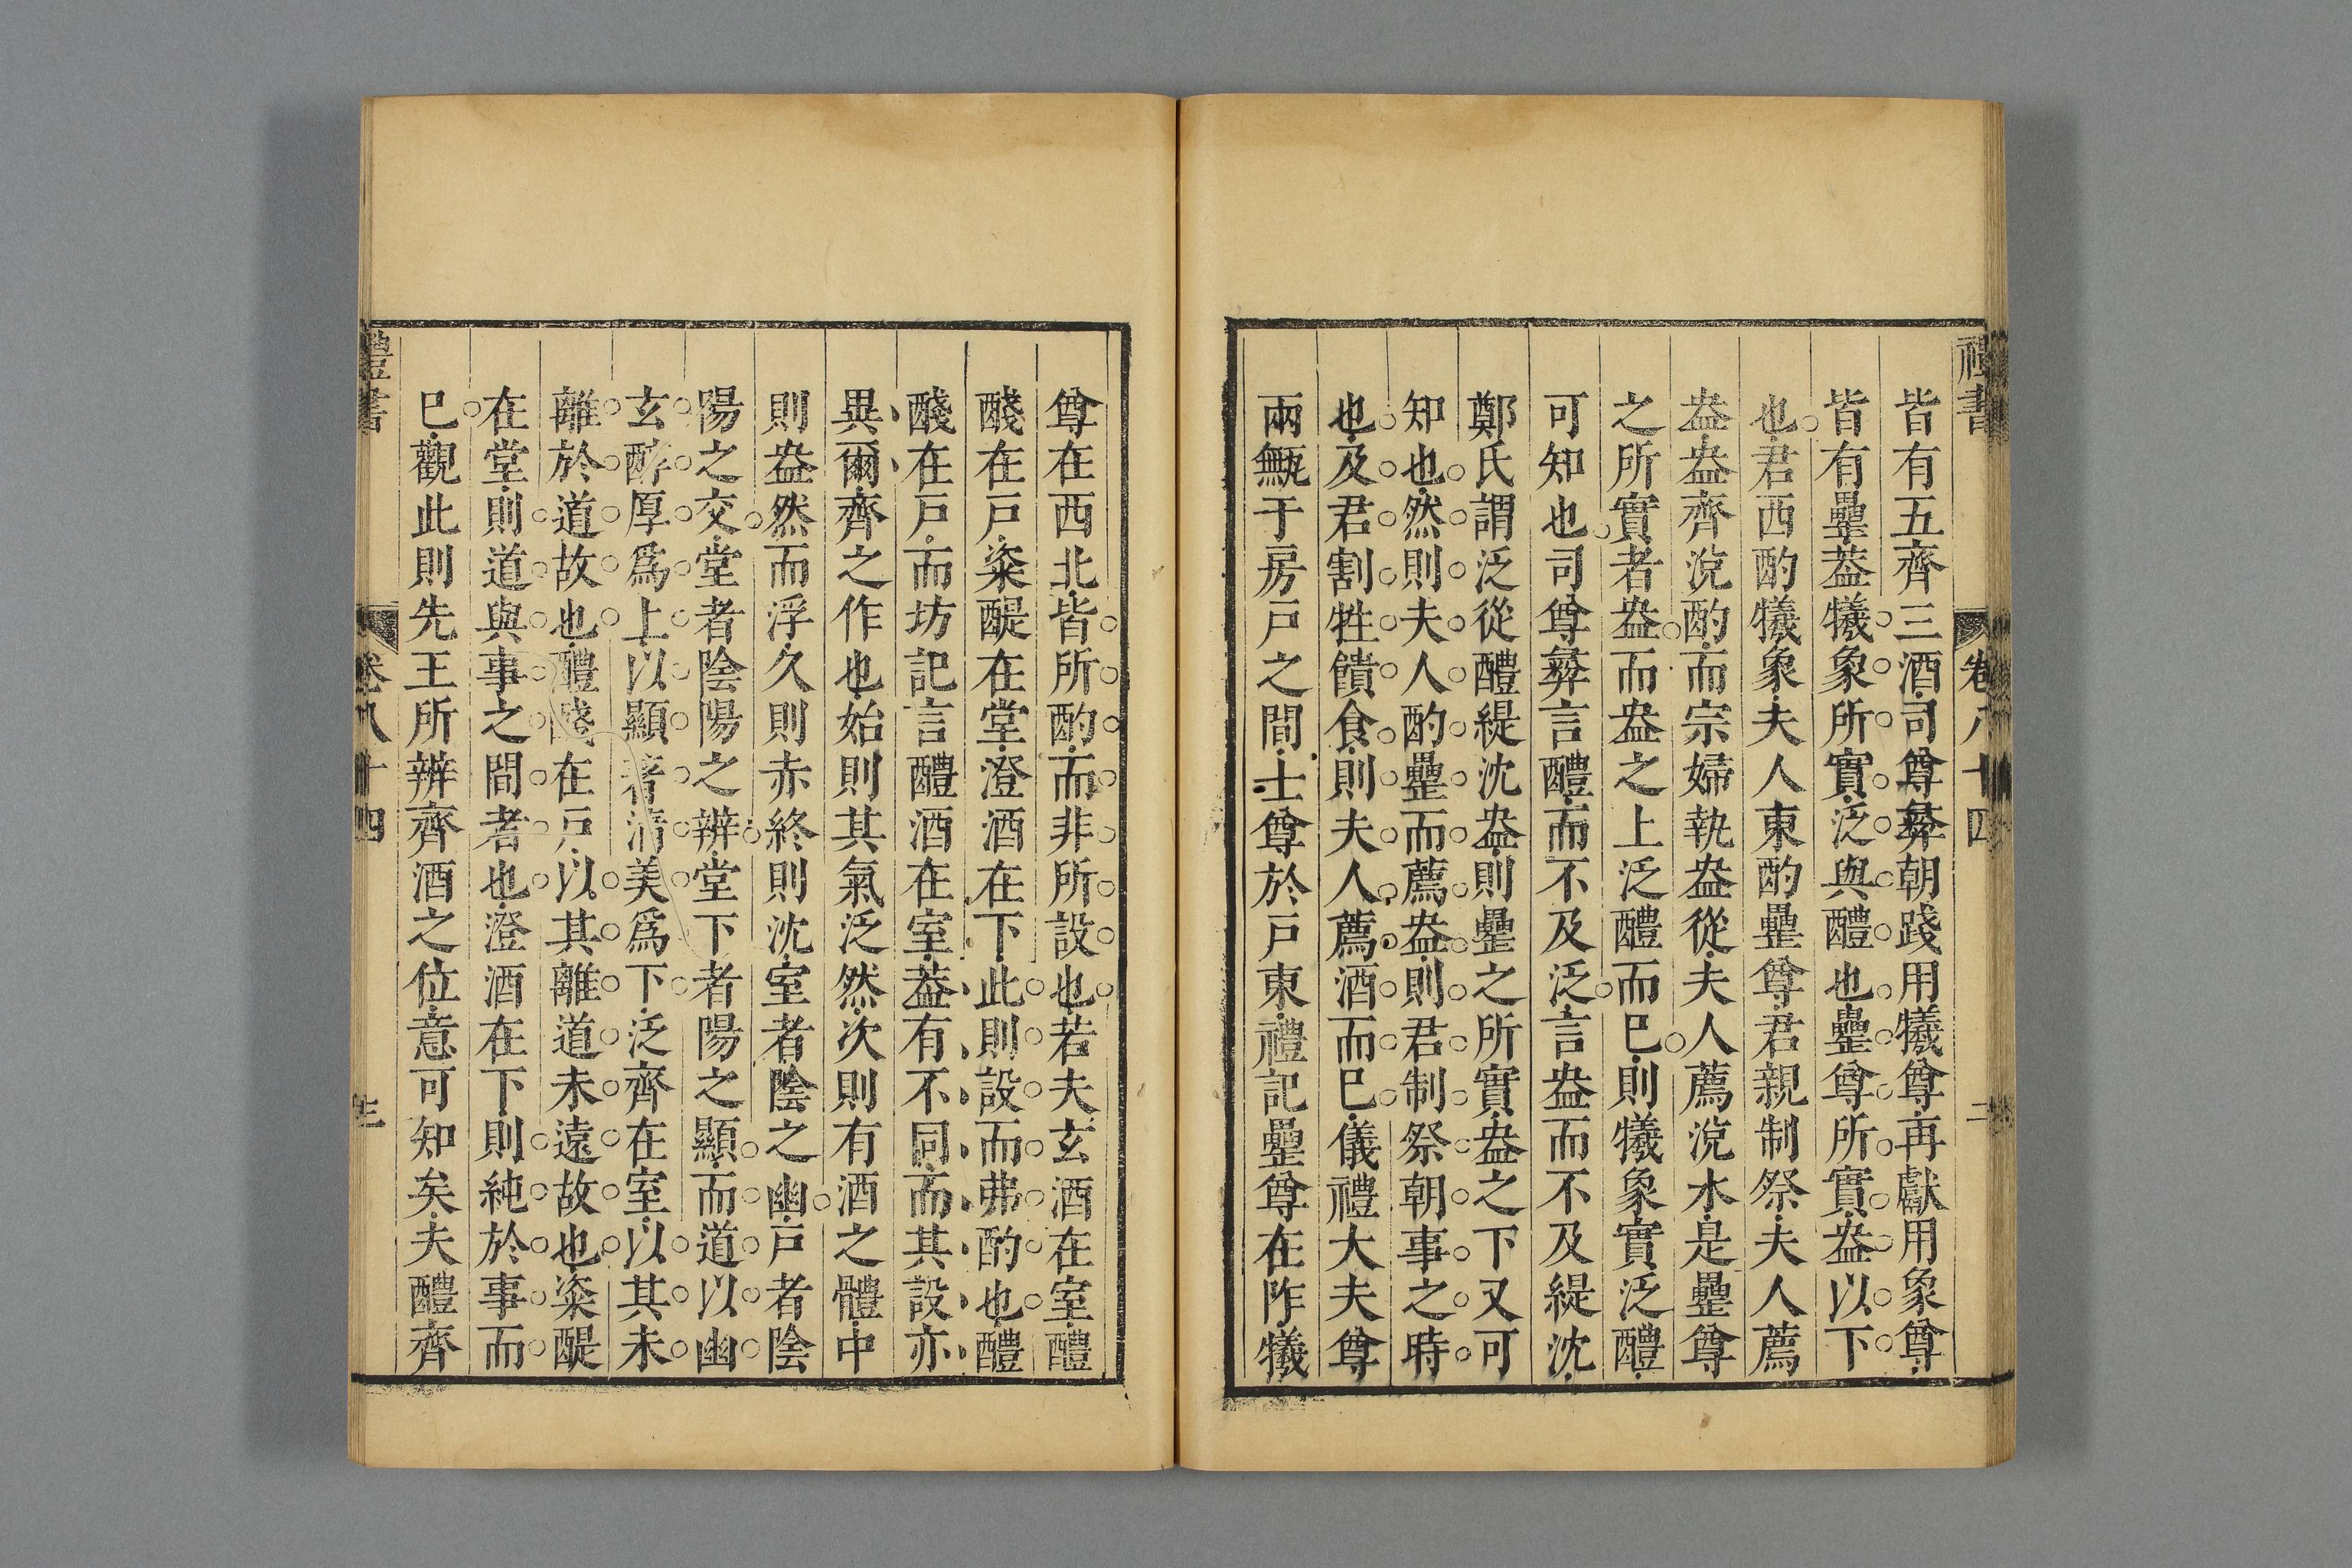 禮書
卷八十四
二
皆有五齊三酒司尊彞朝踐用犧尊再獻用象尊
皆有罍葢犧象所實泛與醴也罍尊所實盎以下
也君西酌犧象夫人東酌罍尊君親制祭夫人薦
盎盎齊涗酌而宗婦執盎從夫人薦涗水是罍尊
之所實者盎而盎之上泛醴而已則犧象實泛醴
可知也司尊彞言醴而不及泛言盎而不及緹沈
鄭氏謂泛從醴緹沈盎則罍之所實盎之下又可
知也然則夫人酌罍而薦盎則君制祭朝事之時
也及君割牲饋食則夫人薦酒而已儀禮大夫尊
兩甒于房戶之間士尊於戶東禮記罍尊在阼犧
尊在西北皆所酌而非所設也若夫玄酒在室醴
醆在戶粢醍在堂澄酒在下此則設而弗酌也醴
醆在戶而坊記言醴酒在室葢有不同而其設亦
異爾齊之作也始則其氣泛然次則有酒之體中
則盎然而浮久則赤終則沈室者陰之幽戶者陰
陽之交堂者陰陽之辨堂下者陽之顯而道以幽
玄酧厚爲上以顯著清美爲下泛齊在室以其未
離於道故也醴醆在戶以其離道未遠故也粢醍
在堂則道與事之間者也澄酒在下則純於事而
已觀此則先王所辨齊酒之位意可知矣夫醴齊
禮書
卷八十四